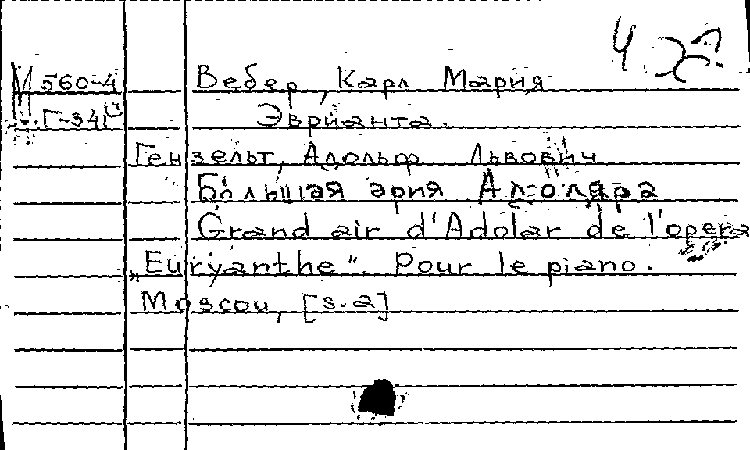 4
М 560-4 Вебер, Карл Мария
Г-341 Эврианта.
Гензельт, Адольф Львович
Большая ария Адоляра
Grand air d'Adolar de l'opera
„Euryanthe". Pour le piano.
Moscou, [s.a]